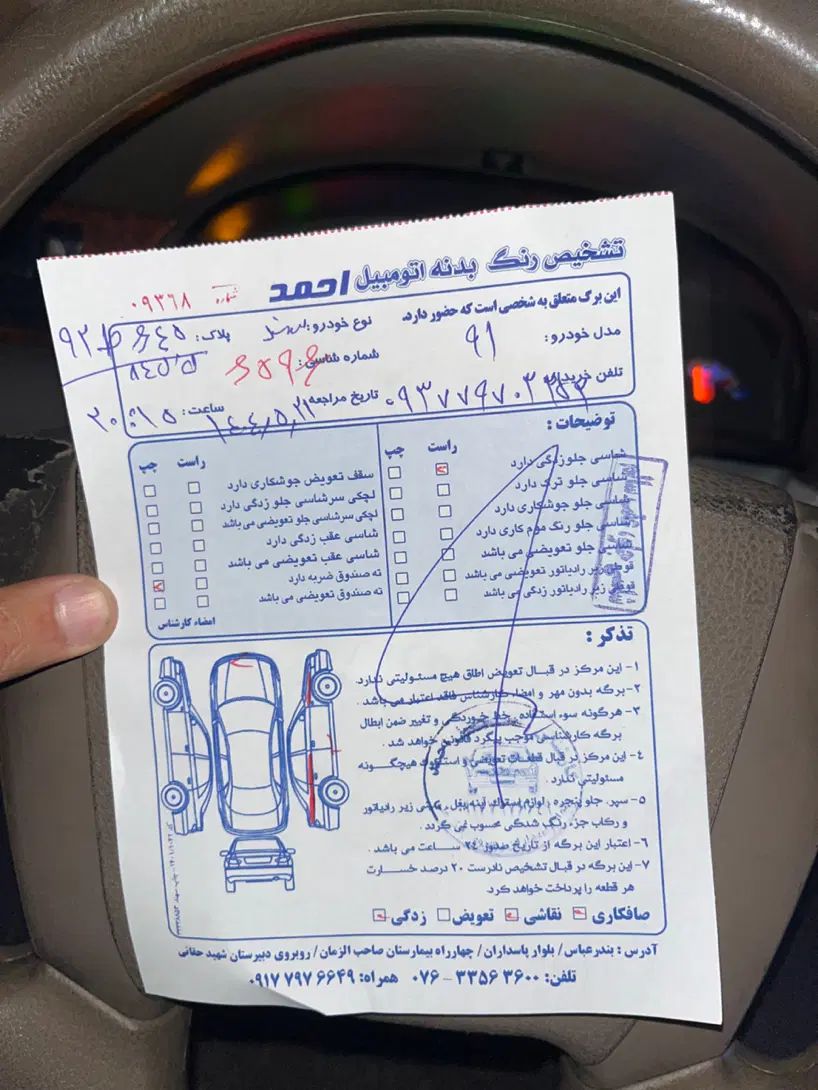 تشخیص رنگ بدنه اتومبیل احمد
شماره ۰۹۳۶۸
این برگ متعلق به شخصی است که حضور دارد.
مدل خودرو: ۹۱
نوع خودرو: سمند
پلاک:
شماره شاسی:
تلفن خریدار:
تاریخ مراجعه:
ساعت: ۲۰:۱۵
توضیحات:
راست چپ
شاسی جلو زدگی دارد
شاسی جلو ترک دارد
شاسی جلو جوشکاری دارد
شاسی جلو رنگ موم کاری دارد
شاسی جلو تعویضی می باشد
قوطی زیر رادیاتور تعویضی می باشد
قوطی زیر رادیاتور زدگی می باشد
راست چپ
سقف تعویض جوشکاری دارد
لچکی سرشاسی جلو زدگی دارد
لچکی سرشاسی جلو تعویضی می باشد
شاسی عقب زدگی دارد
شاسی عقب تعویضی می باشد
ته صندوق ضربه دارد
ته صندوق تعویضی می باشد
امضاء کارشناس
تذکر:
۱- این مرکز در قبال تعویض اطاق هیچ مسئولیتی ندارد.
۲- برگه بدون مهر و امضاء کارشناس فاقد اعتبار می باشد.
۳- هرگونه سوء استفاده، خط خوردگی و تغییر ضمن ابطال
برگه کارشناسی موجب پیگرد قانونی خواهد شد.
۴- این مرکز در قبال قطعات تعویضی و استوک هیچگونه
مسئولیتی ندارد.
۵- سپر، جلو پنجره، لوازم استوک، آینه بغل، سینی زیر رادیاتور
و رکاب جزء رنگ شدگی محسوب نمی گردد.
۶- اعتبار این برگه از تاریخ صدور ۲۴ ساعت می باشد.
۷- این برگه در قبال تشخیص نادرست ۲۰ درصد خسارت
هر قطعه را پرداخت خواهد کرد.
صافکاری نقاشی تعویض زدگی
آدرس: بندرعباس/ بلوار پاسداران/ چهارراه بیمارستان صاحب الزمان/ روبروی دبیرستان شهید حقانی
تلفن: ۳۶۰۰ ۳۳۵۶ - ۰۷۶ همراه: ۶۶۴۹ ۷۹۷ ۰۹۱۷